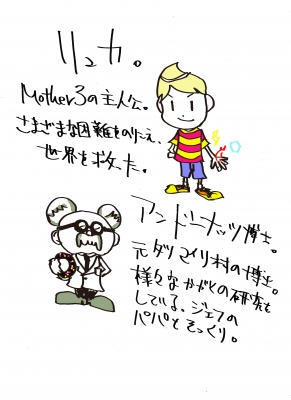 リュカ。
Mother3の主人公。
さまざまな困難をのりこえ、
世界を救った。
アンドーナッツ博士。
元ダリマイリ村の博士。
様々なかがくの研究を
している。ジェフの
パパとそっくり。